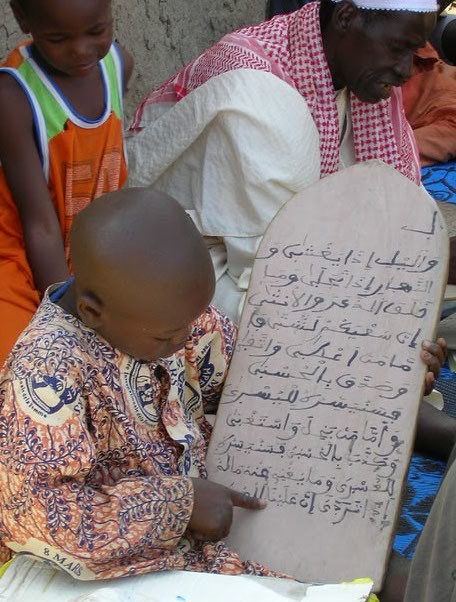 واليل إذا يغشى و
النهار إذا تجلى وما
خلق الذكر والأنثى
إن سعيكم لشتى فأ
ما من أعطى واتقى
وصدق بالحسنى
فسنيسره لليسرى
وأما من بخل واستغنى
وكذب بالحسنى فسنيسره
للعسرى وما يغني عنه ماله
إذا تردى إن علينا
8 MARS